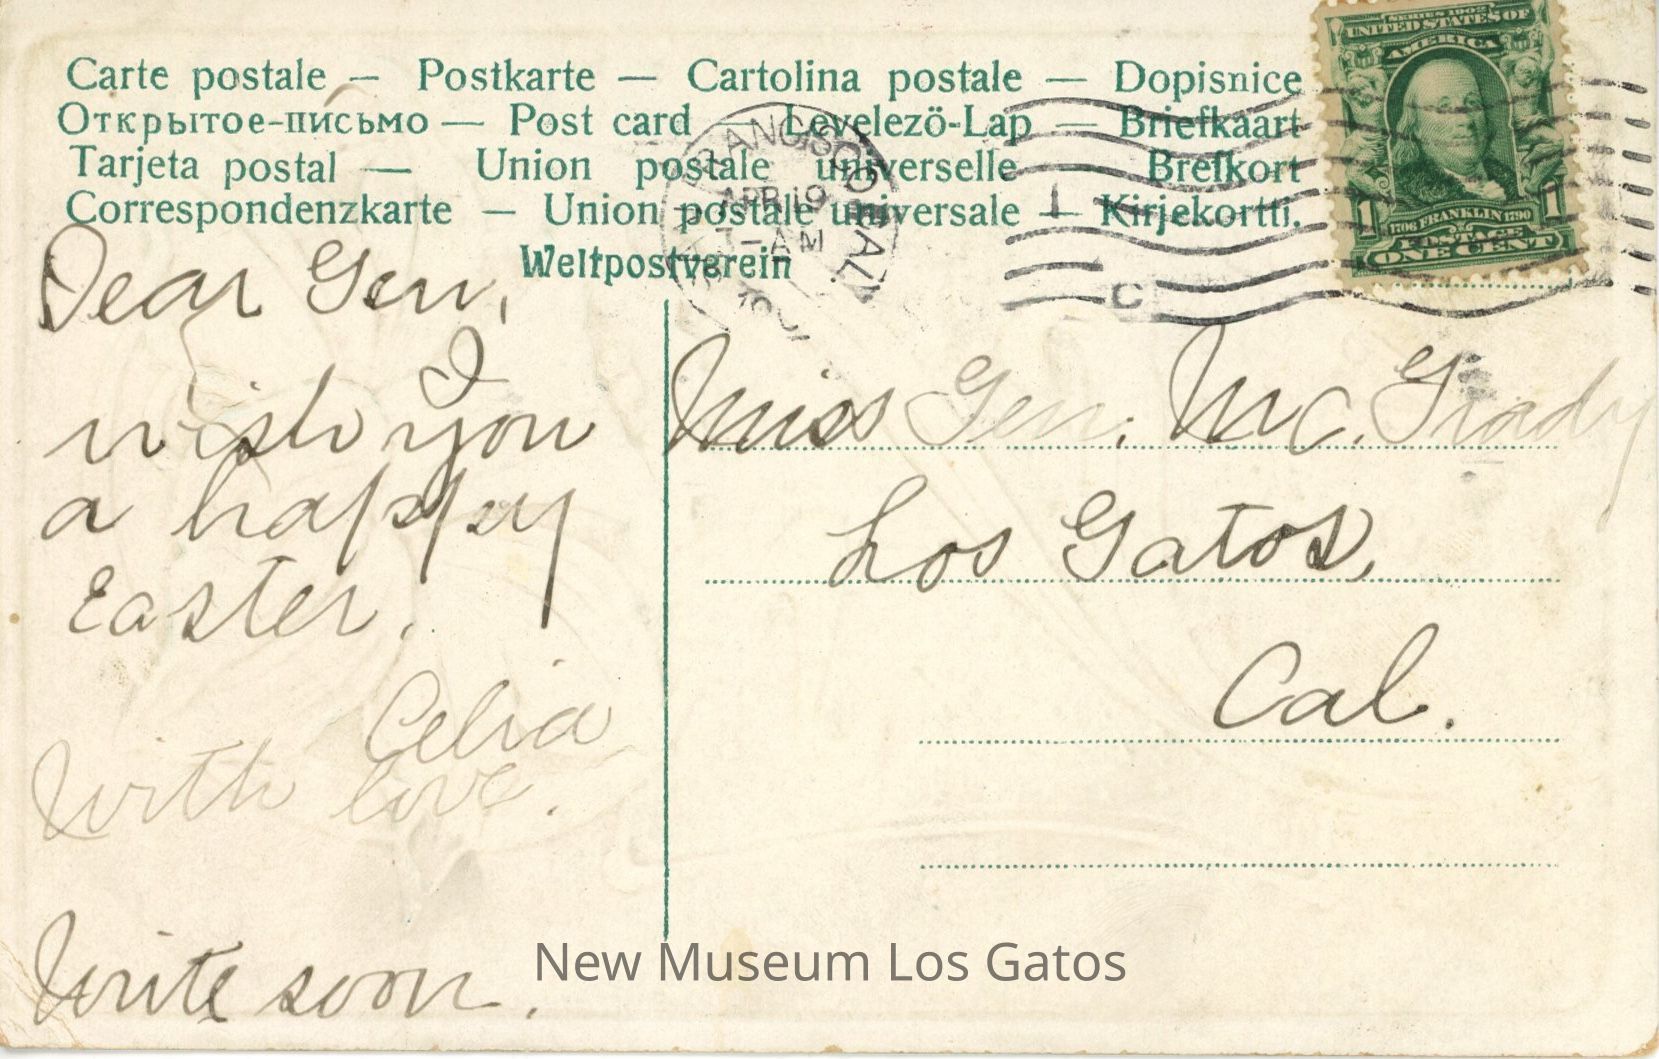 Carte postale — Postkarte — Cartolina postale — Dopisnice
Открытое-письмо — Post card — Levelezö-Lap — Briefkaart
Tarjeta postal — Union postale universelle Brefkort
Correspondenzkarte — Union postale universale — Kirjekortti.
Weltpostverein
FRANCISCO, CAL.
APR 19
7-AM
C
SERIES 1902
UNITED STATES OF
AMERICA
1 1
FRANKLIN
1706 1790
POSTAGE
ONE CENT
Dear Gen,
I
wish you
a happy
Easter.
Celia
With love.
Write soon.
Miss Gen. Mc. Grady
Los Gatos,
Cal.
New Museum Los Gatos